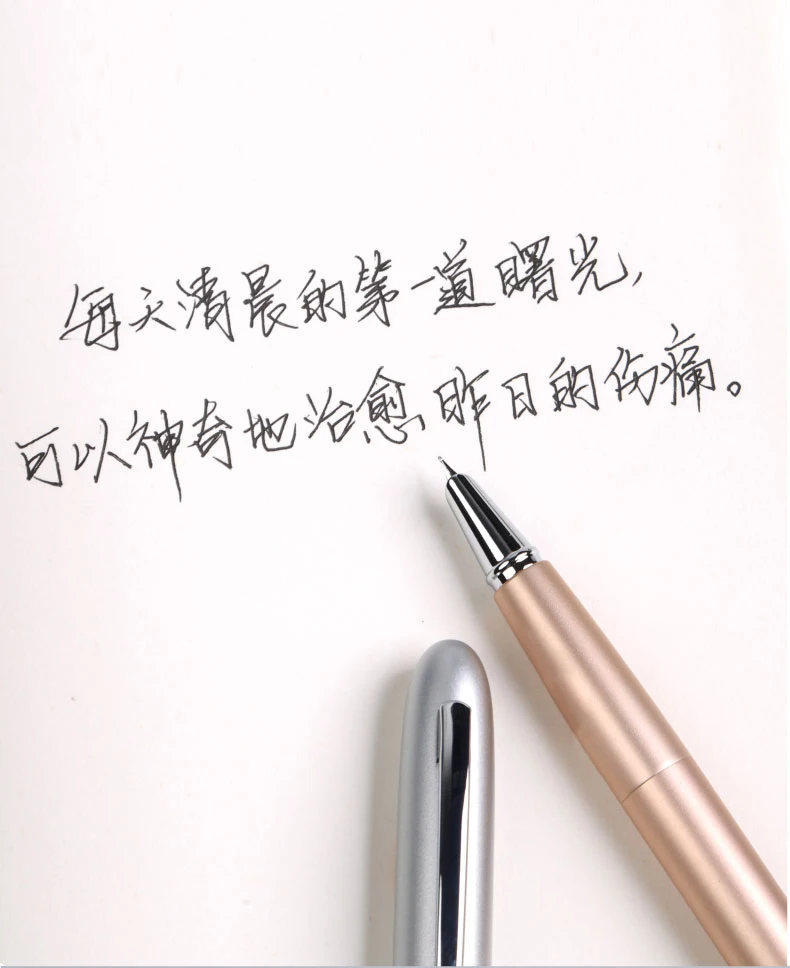 每天清晨的第一道曙光，
可以神奇地治愈昨日的伤痛。